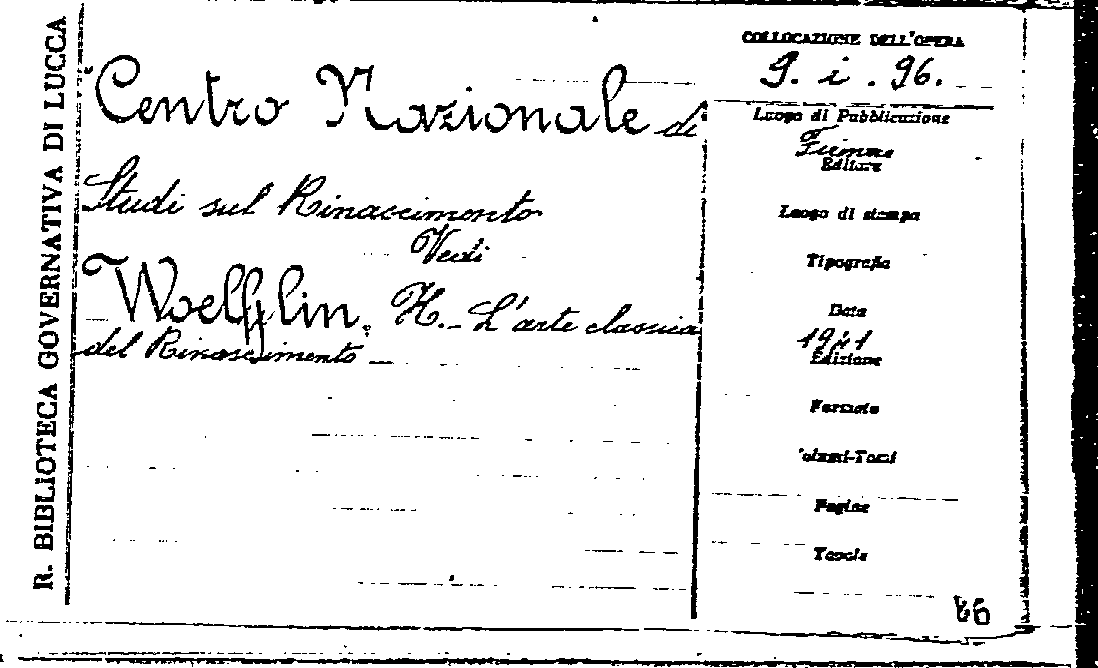 R. BIBLIOTECA GOVERNATIVA DI LUCCA
Centro Nazionale di
Studi sul Rinascimento
Vedi
Woelfflin, H. - L'arte classica
del Rinascimento
COLLOCAZIONE DELL'OPERA
9. i. 96.
Luogo di Pubblicazione
Firenze
Editore
Luogo di stampa
Tipografia
Data
1941
Edizione
Formato
Volumi-Tomi
Pagine
Tavole